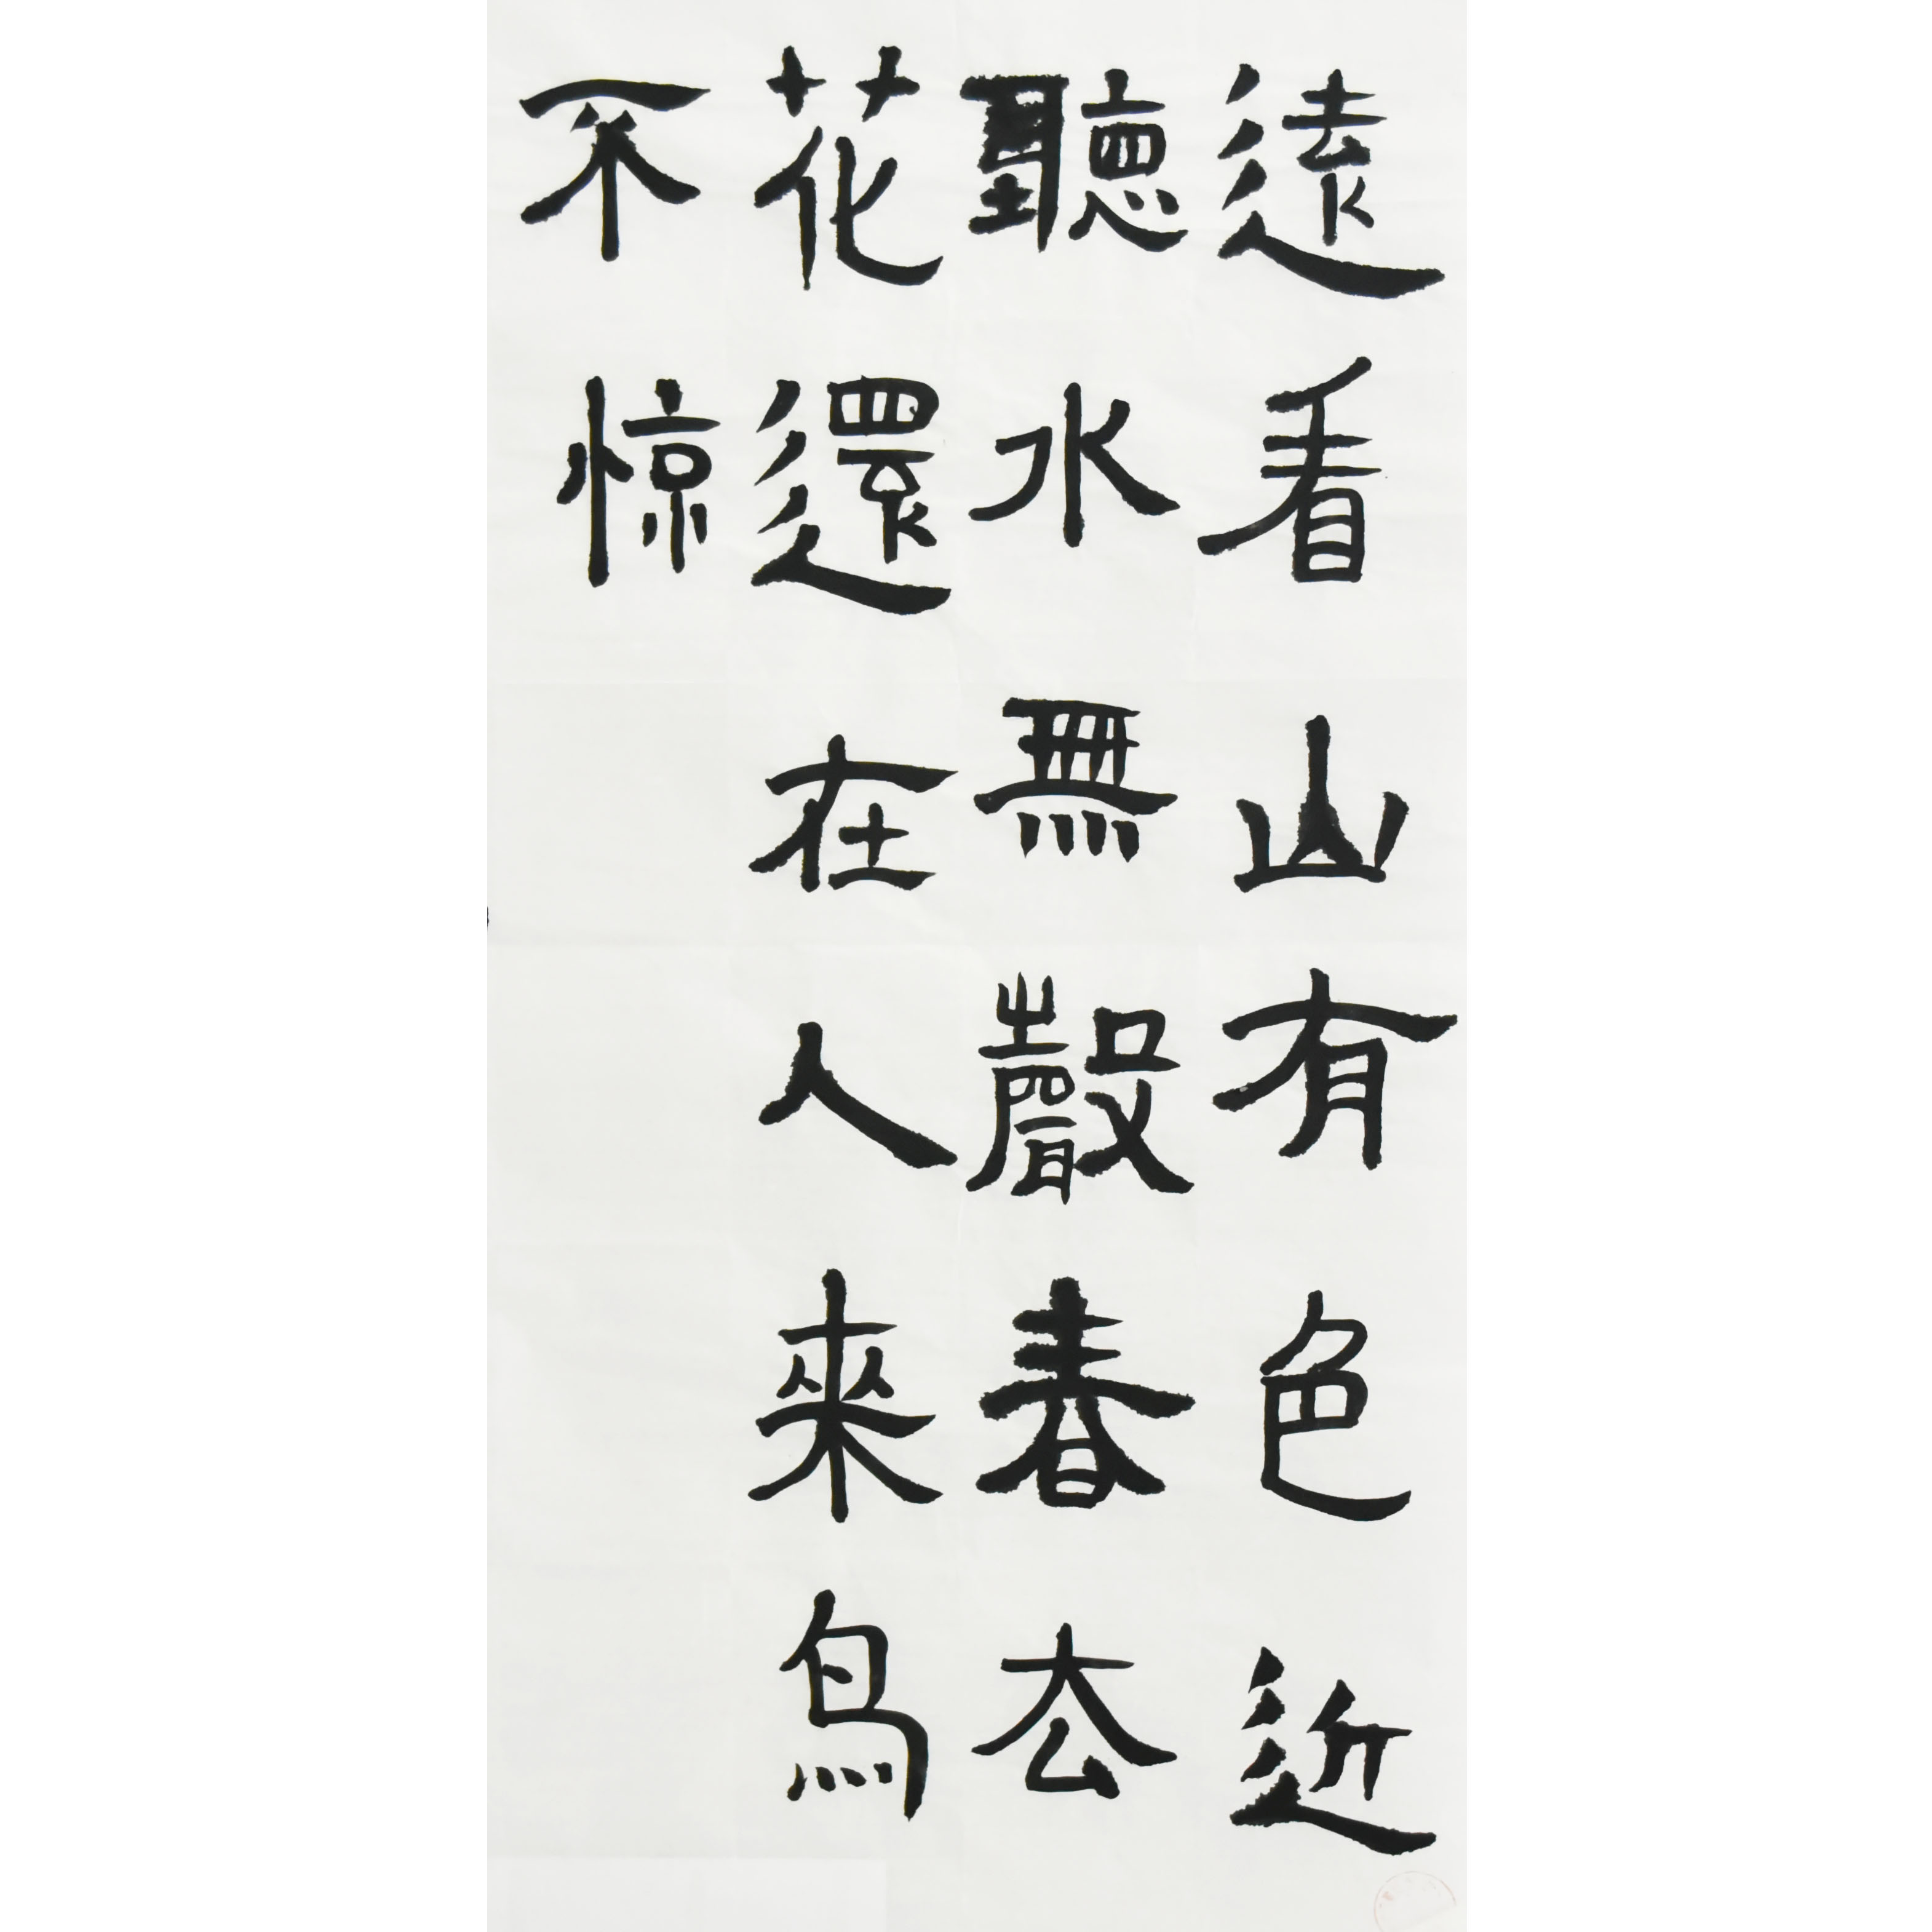 遠看山有色近
聽水無聲春去
花還在人來鳥
不惊